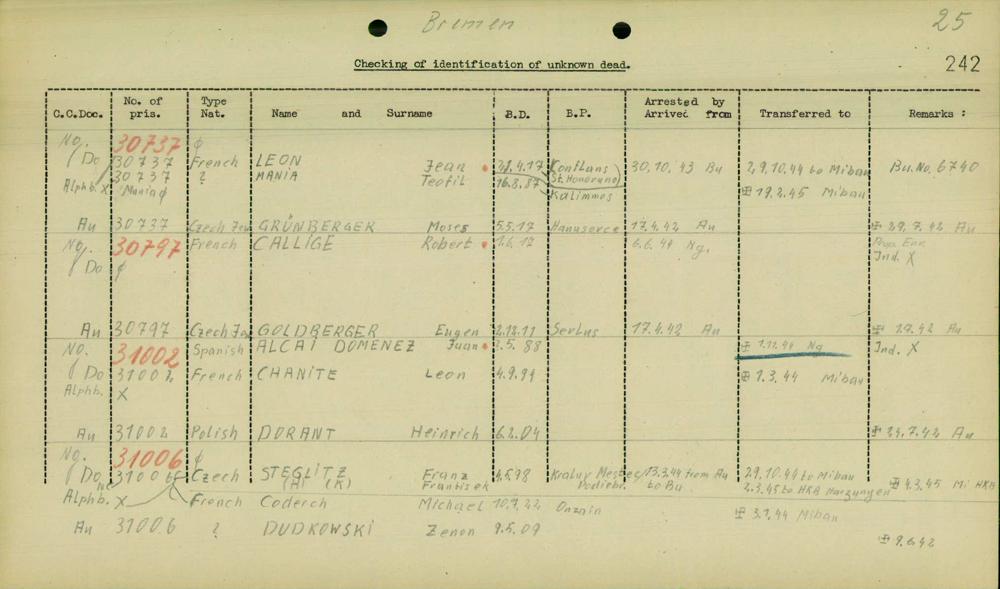 Bremen 25
Checking of identification of unknown dead. 242
C.C.Doc. No. of pris. Type Nat. Name and Surname B.D. B.P. Arrested by Arrived from Transferred to Remarks :
No. 30737 ¢
Do 30737 French LEON Jean 21.4.17 Conflans St. Honorano 30.10.43 Bu 29.10.44 to Mibau Bu.No. 6740
Alphb. X 30737 ? MANIA Teofil 16.8.87 Kalimnos ⌧ 19.2.45 Mibau
Mania ¢
Au 30737 Czech Jew GRÜNBERGER Moses 5.5.17 Hanusovce 17.4.42 Au ⌧ 29.7.42 Au
No. 30797 French CALLIGE Robert 1.6.12 6.6.44 Ng.
Do ¢ Ind. X
Au 30797 Czech Jew GOLDBERGER Eugen 2.12.11 Sevlus 17.4.42 Au ⌧ 1.9.42 Au
No. 31002 Spanish ALCAI DOMENEZ Juan 3.5.88 ⌧ 1.11.44 Ng Ind. X
Do 31002 French CHANITE Leon 4.9.91 ⌧ 1.3.44 Mibau
Alphb. X
Au 31002 Polish DORANT Heinrich 6.2.04 ⌧ 24.7.42 Au
No. 31006 ¢
Do 31006 Czech STEGLITZ Franz 4.5.98 Kraluv Mestec 13.3.44 from Au 29.10.44 to Mibau
(A) (K) Frantisek Podiebr. to Bu. 2.3.45 to HKB Harzungen ⌧ 4.3.45 Mi HKB
Alphb. X French Coderch Michael 10.7.22 Onzain
⌧ 3.1.44 Mibau
Au 31006 ? DUDKOWSKI Zenon 9.5.09
⌧ 9.6.42